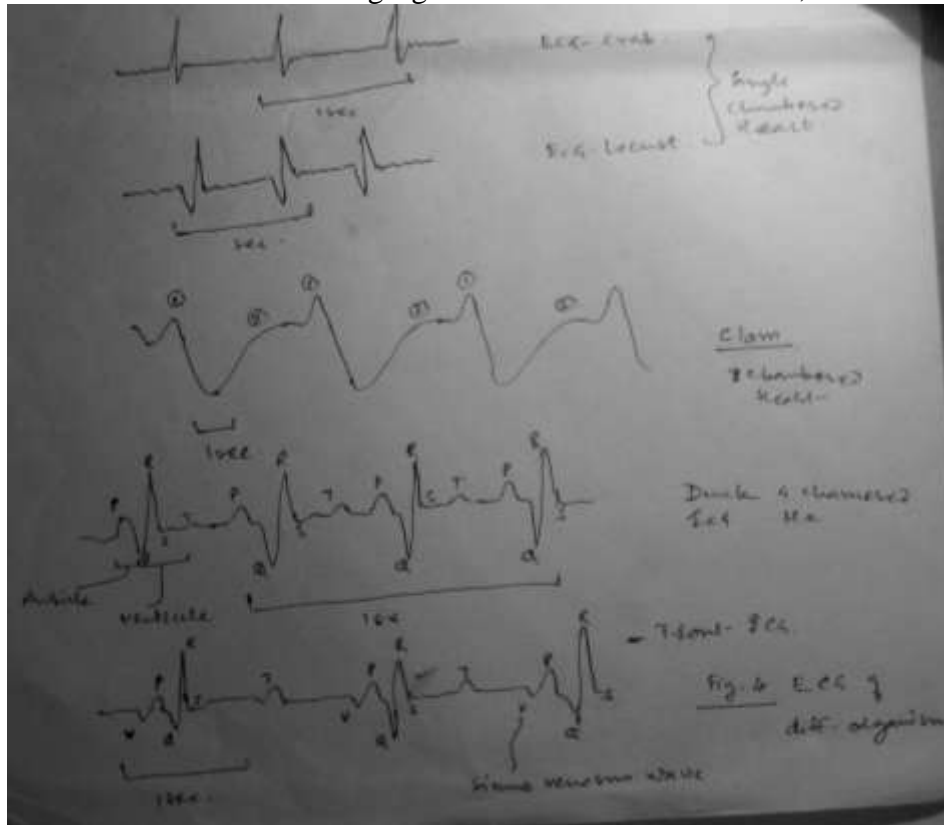 ECG- Crab
1sec
Single
Chambered
Heart
ECG- Locust
1sec.
①
②
①
②
①
②
Clam
Chambered
Heart
1sec
P
R
Q
S
T
P
R
Q
S
T
P
R
Q
S
T
P
R
Q
S
Duck 4 chambered
ECG
Auricle
Ventricle
1sec
- Trout- ECG
V
P
Q
R
S
T
V
P
Q
R
S
T
V
P
Q
R
S
Fig. 4 ECG of
diff. organism
1sec.
Sinus venosus wave